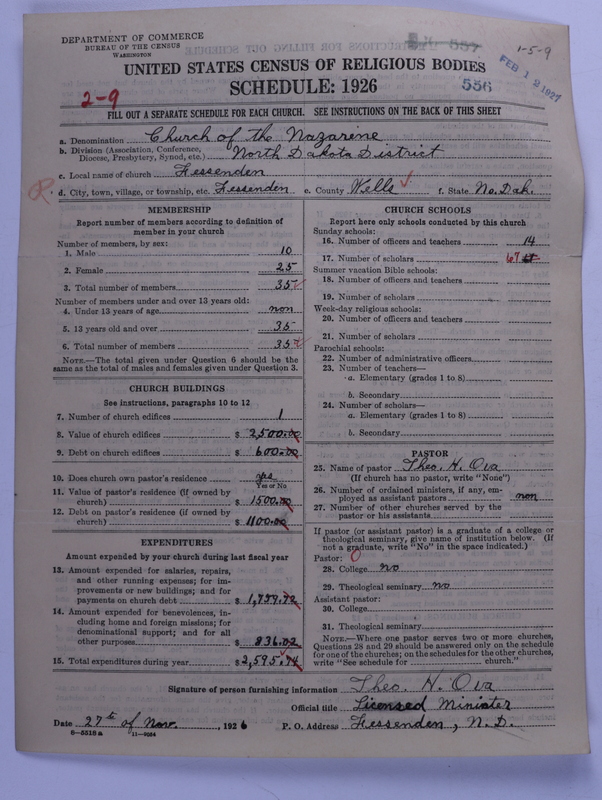 DEPARTMENT OF COMMERCE
BUREAU OF THE CENSUS
WASHINGTON
557
1-5-9
FEB 12 1927
UNITED STATES CENSUS OF RELIGIOUS BODIES
SCHEDULE: 1926
556
2-9
FILL OUT A SEPARATE SCHEDULE FOR EACH CHURCH. SEE INSTRUCTIONS ON THE BACK OF THIS SHEET
a. Denomination Church of the Nazarine
b. Division (Association, Conference,
Diocese, Presbytery, Synod, etc.) North Dakota District
c. Local name of church Fessenden
R. d. City, town, village, or township, etc. Fessenden e. County Wells f. State No. Dak.
MEMBERSHIP
Report number of members according to definition of
member in your church
Number of members, by sex:
1. Male 10
2. Female 25
3. Total number of members 35
Number of members under and over 13 years old:
4. Under 13 years of age non
5. 13 years old and over 35
6. Total number of members 35
NOTE.—The total given under Question 6 should be the
same as the total of males and females given under Question 3.
CHURCH BUILDINGS
See instructions, paragraphs 10 to 12
7. Number of church edifices 1
8. Value of church edifices $ 2,500.00
9. Debt on church edifices $ 600.00
10. Does church own pastor's residence yes
Yes or No
11. Value of pastor's residence (if owned by
church) $ 1500.00
12. Debt on pastor's residence (if owned by
church) $ 1100.00
EXPENDITURES
Amount expended by your church during last fiscal year
13. Amount expended for salaries, repairs,
and other running expenses; for im-
provements or new buildings; and for
payments on church debt $ 1,759.92
14. Amount expended for benevolences, in-
cluding home and foreign missions; for
denominational support; and for all
other purposes $ 836.02
15. Total expenditures during year $ 2,595.94
CHURCH SCHOOLS
Report here only schools conducted by this church
Sunday schools:
16. Number of officers and teachers 14
17. Number of scholars 67
Summer vacation Bible schools:
18. Number of officers and teachers
19. Number of scholars
Week-day religious schools:
20. Number of officers and teachers
21. Number of scholars
Parochial schools:
22. Number of administrative officers
23. Number of teachers—
a. Elementary (grades 1 to 8)
b. Secondary
24. Number of scholars—
a. Elementary (grades 1 to 8)
b. Secondary
PASTOR
25. Name of pastor Theo. H. Ova
(If church has no pastor, write "None")
26. Number of ordained ministers, if any, em-
ployed as assistant pastors non
27. Number of other churches served by the
pastor or his assistants
If pastor (or assistant pastor) is a graduate of a college or
theological seminary, give name of institution below. (If
not a graduate, write "No" in the space indicated.)
Pastor: 0
28. College no
29. Theological seminary no
Assistant pastor:
30. College
31. Theological seminary
NOTE.—Where one pastor serves two or more churches,
Questions 28 and 29 should be answered only on the schedule
for one of the churches; on the schedules for the other churches,
write "See schedule for church."
Signature of person furnishing information Theo. H. Ova
Official title Licensed Minister
Date 27th of Nov. , 1926 P. O. Address Fessenden, N. D.
8—5518a 11—9084